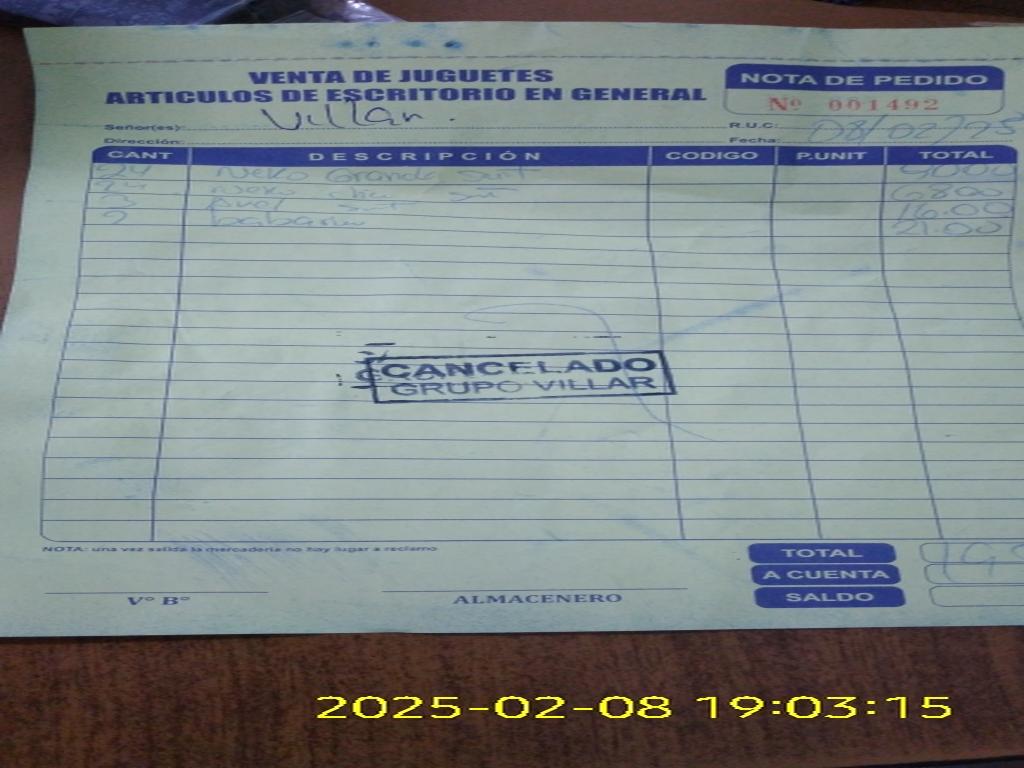 VENTA DE JUGUETES
ARTICULOS DE ESCRITORIO EN GENERAL
NOTA DE PEDIDO
Nº 001492
Señor(es): Villar.
R.U.C:
Dirección:
Fecha: 08/02/25
CANT DESCRIPCIÓN CODIGO P.UNIT TOTAL
24 Neko Grande Surt
24 Neko 6800
3 16.00
2 21.00
CANCELADO
GRUPO VILLAR
NOTA: una vez salida la mercadería no hay lugar a reclamo
TOTAL 195
A CUENTA
SALDO
V° B°
ALMACENERO
2025-02-08 19:03:15